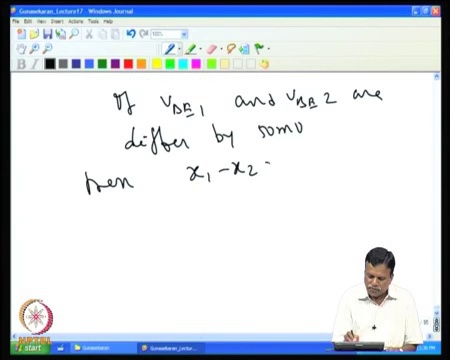 Gunasekaran_Lecture17 - Windows Journal
File Edit View Insert Actions Tools Help
100%
B I
If VBE1 and VBE2 are
differ by 50mV
then x1 - x2 =
NPTEL
start Gunasekaran Gunasekaran_Lectur...